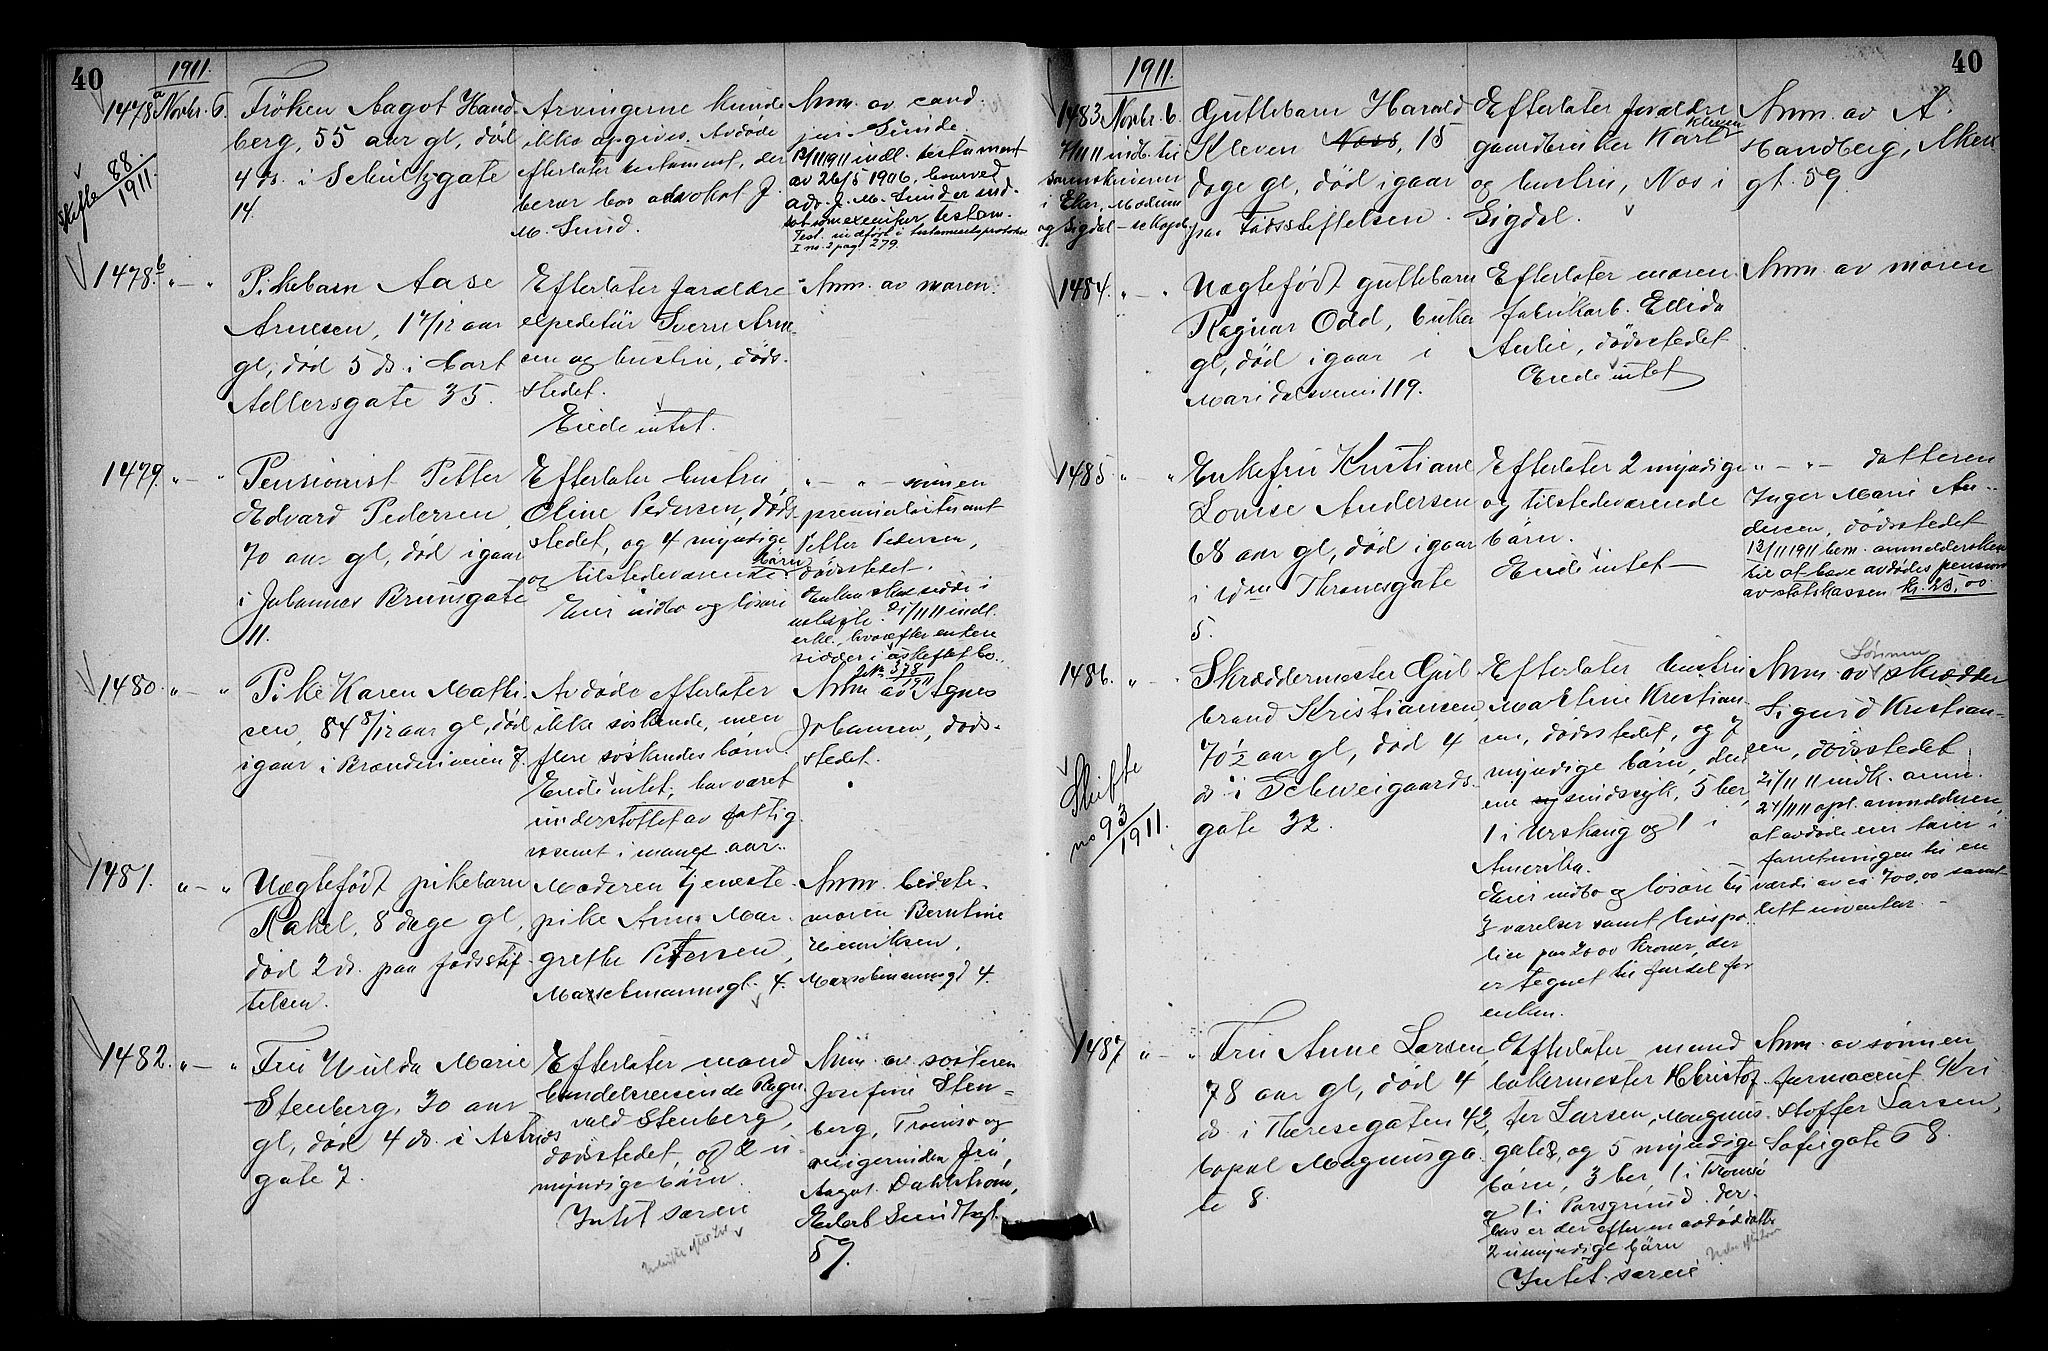 40
1911.
1478a Novbr. 6.
Skifte 88/1911.
Frøken Aagot Hand-
berg, 55 aar gl, død
4 ds. i Schultzgate
14.
Arvingerne kunde
ikke opgives. Avdøde
efterlater testament, der
beror hos advokat J.
M. Lund.
Anm. av cand.
jur. Sinde.
13/11 1911 indl. testament
av 26/5 1906, hvorved
adv. J. M. Lund er ind-
sat som executor testam.
Test. indført i testamentsprotokol
I no. 2 pag. 279.
1478b " — "
Pikebarn Aase
Arnesen, 1 7/12 aar
gl, død 5 ds i Cort
Adlersgate 35.
Efterlater forældre
expeditør Sverre Arne-
sen og hustru, døds-
stedet.
Eiede intet.
Anm. av moren.
1479. " — "
Pensionist Petter
Edvard Pedersen,
70 aar gl, død igaar
i Johannes Brunsgate
11.
Efterlater hustru
Oline Pedersen, døds-
stedet, og 4 myndige
og tilstedeværende børn
Eier indbo og løsøre
" — " — sønnen
premierløitnant
Petter Pedersen,
dødsstedet.
Enken skal sidde i
uskifte. 21/11 11 indl.
erkl. hvorefter enken
sidder i uskiftet bo.
378/1911
1480. " — "
Pike Karen Mathi-
sen, 84 8/12 aar gl, død
igaar i Brænderiveien 7.
Avdøde efterlater
ikke søskende, men
flere søskendes børn
Eiede intet, har været
understøttet av fattig-
væsenet i mange aar.
Anm av Agnes
Johansen, døds-
stedet.
1481. " — "
Uægtefødt pikebarn
Rakel, 8 dage gl,
død 2 ds. paa fødsstif-
telsen.
Moderen tjeneste-
pike Anna Mar-
grethe Petersen,
Marselmannsgt. 4.
Anm. bedste-
moren Berntine
Henriksen,
Marselmannsgt 4.
1482. " — "
Fru Hulda Marie
Stenberg, 30 aar
gl, død 4 ds. i Astrids
gate 7.
Efterlater mand
handelsreisende Ragn-
vald Stenberg,
dødsstedet, og 2 u-
myndige børn.
Intet særeie
Anm. av søsteren
Josefine Sten-
berg, Tromsø og
svigerinden Fru
Aagot Dahlstrøm,
Eilert Sundtsgt.
59.
40
1911.
1483 Novbr. 6.
7/11 11 indb. til
sorenskriveren
i Eker, Modum
og Sigdal
Guttebarn Harald
Kleven Noss, 15
dage gl, død igaar
paa Fødsstiftelsen.
Efterlater forældre
gaardbruker Karl Kleven
og hustru, Nos i
Sigdal.
Anm. av A.
Handberg, Akers
gt. 59.
1484. " — "
Uægtefødt guttebarn
Ragnar Odd, 6 uker
gl, død igaar i
Maridalsveien 119.
Efterlater moren
fabrikarb. Ellida
Aulie, dødsstedet
Eiede intet
Anm. av moren
1485 " — "
Enkefru Kristiane
Louise Andersen
68 aar gl, død igaar
i Wm Thranesgate
5.
Efterlater 2 myndige
og tilstedeværende
børn.
Eiede intet —
" — " — datteren
Inger Marie An-
dersen, dødsstedet
13/11 1911 bem. anmeldersken
til at hæve avdødes pension
av statskassen kr. 25,00
1486. " — "
Skifte
no 93/1911.
Skræddermester Gul-
brand Kristiansen,
70 1/2 aar gl, død 4
ds i Schweigaards-
gate 32.
Efterlater hustru
Mathine Kristian-
sen, dødsstedet, og 7
myndige børn, der
ene sindssyk, 5 her,
1 i Urskaug og 1 i
Amerika.
Eier indbo og løsøre til
3 værelser samt livspo-
lice paa 2000 kroner, der
er tegnet til fordel for
enken.
Anm. av sønnen skrædder
Sigurd Kristian-
sen, dødsstedet
21/11 11 indk. anm.
27/11 11 opl. anmelderen
at avdøde eier varer i
forretningen til en
værdi av ca. 700,00 samt
litt inventar. —
1487 " — "
Fru Anne Larsen,
78 aar gl, død 4
ds. i Theresegaten 42,
bopæl Magnusga-
te 8.
Efterlater mand
bakermester Kristof-
fer Larsen, Magnus-
gate 8, og 5 myndige
børn, 3 her, 1 i Tromsø
1 i Porsgrund. der-
hos er der efter en avdød datter
2 umyndige børn
Intet særeie
Anm. av sønnen
farmaceut Kri-
stoffer Larsen,
Sofiegate 68.